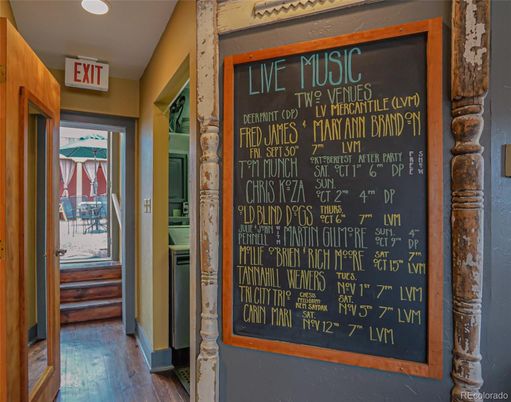 EXIT
LIVE MUSIC
TWO VENUES
DEERPRINT (DP) LV MERCANTILE (LVM)
FRED JAMES & MARY ANN BRANDON
FRI. SEPT 30 7 LVM
TOM MUNCH OKTOBERFEST AFTER PARTY OCT 1 6 DP FREE SHOW
CHRIS KOZA SUN. OCT 2 4 DP
OLD BLIND DOGS THURS. OCT 6 7 LVM
JULIE & JOHN PENNELL WITH MARTIN GILMORE SUN. 4 OCT 9 DP
MOLLIE O'BRIEN & RICH MOORE SAT. 7 OCT 15 LVM
TANNAHILL WEAVERS TUES. NOV 1 7 LVM
TRI CITY TRIO SAT. NOV 5 7 LVM
CARIN MARI SAT. NOV 12 7 LVM
REcolorado